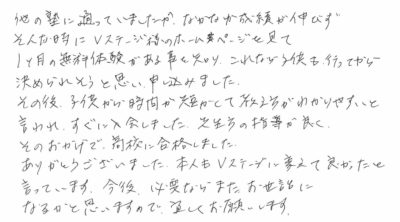 他の塾に通っていましたが、なかなか成績が伸びず
そんな時にVステージ様のホームページを見て
1ヶ月の無料体験がある事を知り、これなら子供も行ってから
決められそうと思い、申し込みました。
その後、子供から時間が短かくて教え方がわかりやすいと
言われ、すぐに入会しました。先生方の指導が良く、
そのおかげで、高校に合格しました。
ありがとうございました。本人もVステージに変えて良かったと
言っています。今後、必要ならまたお世話に
なるかと思いますので、宜しくお願いします。